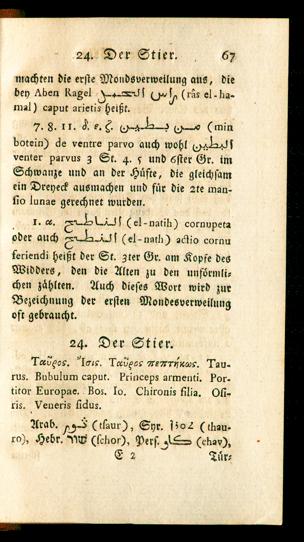 24. Der Stier. 67
machten die erste Mondsverweilung aus, die
bey Aben Ragel راس الحمل (râs el-ha-
mal) caput arietis heißt.
7. 8. 11. δ. ε. ζ. من بطين (min
botein) de ventre parvo auch wohl البطين
venter parvus 3 St. 4. 5 und 6ster Gr. im
Schwanze und an der Hüfte, die gleichsam
ein Dreyeck ausmachen und für die 2te man-
sio lunae gerechnet wurden.
1. α. الناطح (el-natih) cornupeta
oder auch النطح (el-nath) actio cornu
feriendi heißt der St. 3ter Gr. am Kopfe des
Widders, den die Alten zu den unförmli-
chen zählten. Auch dieses Wort wird zur
Bezeichnung der ersten Mondesverweilung
oft gebraucht.
24. Der Stier.
Ταῦρος. Ἴσις. Ταῦρος πεπτηκως. Tau-
rus. Bubulum caput. Princeps armenti. Por-
titor Europae. Bos. Io. Chironis filia. Osi-
ris. Veneris sidus.
Arab. ثور (tsaur), Syr. (thau-
ro), Hebr. שור (schor), Pers. كاو (chav),
E 2 Tür-